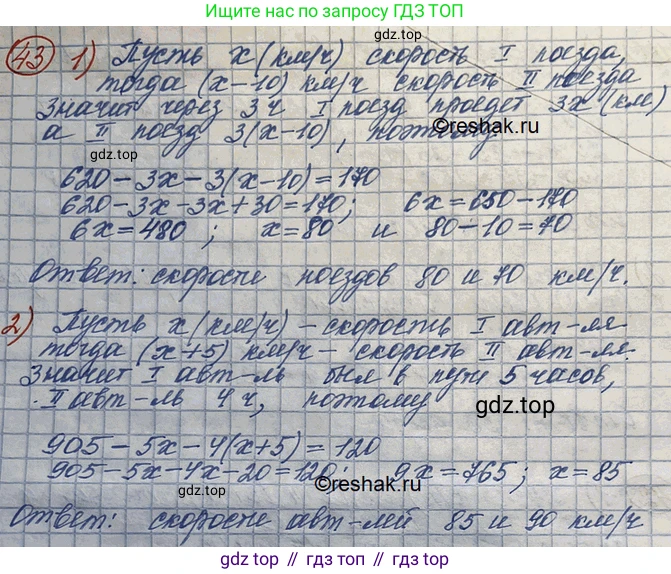 Нашли ответ по запросу ГДЗ ТОП
43 1) Пусть x (км/ч) скорость I поезда,
тогда (x-10) км/ч скорость II поезда
значит через 3 ч I поезд проедет 3x (км)
а II поезд 3(x-10), поэтому
©reshak.ru
gdz.top
620-3x-3(x-10)=170
620-3x-3x+30=170; 6x=650-170
6x=480; x=80 и 80-10=70
Ответ: скорости поездов 80 и 70 км/ч.
2) Пусть x (км/ч) - скорость I авт-ля
тогда (x+5) км/ч - скорость II авт-ля.
Значит I авт-ль был в пути 5 часов,
II авт-ль 4 ч, поэтому
gdz.top
905-5x-4(x+5)=120
905-5x-4x-20=120; 9x=765; x=85
gdz.top
©reshak.ru
Ответ: скорости авт-лей 85 и 90 км/ч
gdz.top // гдз.топ // gdz.top